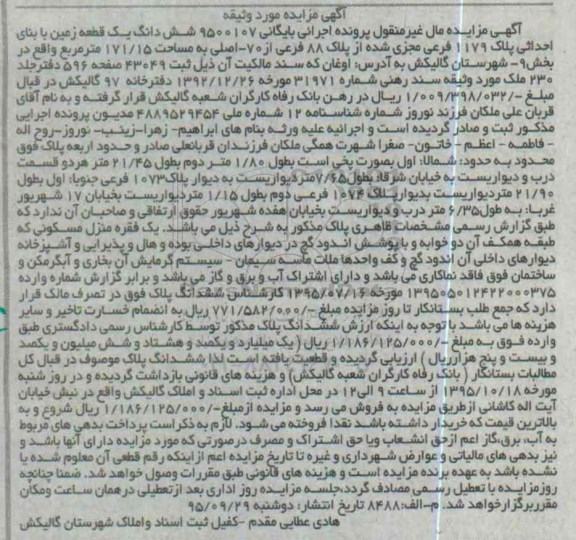 آگهی مزایده مورد وثیقه
آگهی مزایده مال غیرمنقول پرونده اجرائی بایگانی ۹۵۰۰۱۰۷ شش دانگ یک قطعه زمین با بنای
احداثی پلاک ۱۱۷۹ فرعی مجزی شده از پلاک ۸۸ فرعی از۷۰-اصلی به مساحت ۱۷۱/۱۵ مترمربع واقع در
بخش۹- شهرستان گالیکش به آدرس: اوغان که سند مالکیت آن ذیل ثبت ۴۳۰۴۹ صفحه ۵۹۶ دفترجلد
۲۳۰ ملک مورد وثیقه سند رهنی شماره ۳۱۹۷۱ مورخه ۱۳۹۲/۱۲/۲۶ دفترخانه ۹۷ گالیکش در قبال
مبلغ -/۱/۰۰۹/۳۹۸/۰۳۲ ریال در رهن بانک رفاه کارگران شعبه گالیکش قرار گرفته و به نام آقای
قربان علی ملکان فرزند نوروز شماره شناسنامه ۱۲ شماره ملی ۴۸۸۹۵۲۹۴۵۴ مدیون پرونده اجرایی
مذکور ثبت و صادر گردیده است و اجرائیه علیه ورثه بنام های ابراهیم- زهرا-زینب- نوروز-روح اله
- فاطمه - اعظم - خاتون- صغرا شهرت همگی ملکان فرزندان قربانعلی صادر و حدود اربعه پلاک فوق
محدود به حدود: شمالا: اول بصورت پخی است بطول ۱/۸۰ متر دوم بطول ۲۱/۴۵ متر هردو قسمت
درب و دیواریست به خیابان شرقا: بطول ۷/۶۵متردیواریست به دیوار پلاک۱۰۷۳ فرعی جنوبا: اول بطول
۲۱/۹۰ متردیواریست بدیوارپلاک ۱۰۷۴ فرعی دوم بطول ۱/۱۵ متردیواریست بخیابان ۱۷ شهریور
غربا: به طول ۶/۳۵ متر درب و دیواریست بخیابان هفده شهریور حقوق ارتفاقی و صاحبان آن ندارد که
طبق گزارش رسمی مشخصات ظاهری پلاک مذکور به شرح ذیل می باشد. یک فقره منزل مسکونی که
طبقه همکف آن دو خوابه و با پوشش اندود گچ در دیوارهای داخلی بوده و هال و پذیرایی و آشپزخانه
دیوارهای داخلی آن اندود گچ و کف واحدها ملات ماسه سیمان - سیستم گرمایش آن بخاری و آبگرمکن و
ساختمان فوق فاقد نماکاری می باشد و دارای اشتراک آب و برق و گاز می باشد و برابر گزارش شماره وارده
۱۳۹۵۰۵۰۱۲۴۲۲۰۰۰۳۷۵ مورخه ۱۳۹۵/۰۷/۱۶ کارشناس ششدانگ پلاک فوق در تصرف مالک قرار
دارد که جمع طلب بستانکار تا روز مزایده مبلغ -/۷۷۱/۵۸۲/۰۰۰ ریال به انضمام خسارت تاخیر و سایر
هزینه ها می باشد با توجه به اینکه ارزش ششدانگ پلاک مذکور توسط کارشناس رسمی دادگستری طبق
وارده فوق به مبلغ -/۱/۱۸۶/۱۲۵/۰۰۰ ریال ( یک میلیارد و یکصد و هشتاد و شش میلیون و یکصد
و بیست و پنج هزارریال ) ارزیابی گردیده و قطعیت یافته است لذا ششدانگ پلاک موصوف در قبال کل
مطالبات بستانکار ( بانک رفاه کارگران شعبه گالیکش) و هزینه های قانونی بازداشت گردیده و در روز شنبه
مورخه ۱۳۹۵/۱۰/۱۸ از ساعت ۹ الی۱۲ در محل اداره ثبت اسناد و املاک گالیکش واقع در نبش خیابان
آیت اله کاشانی ازطریق مزایده به فروش می رسد و مزایده ازمبلغ-/۱/۱۸۶/۱۲۵/۰۰۰ ریال شروع و به
بالاترین قیمت که خریدار داشته باشد نقدا فروخته می شود. لازم به ذکراست پرداخت بدهی های مربوط
به آب، برق،گاز اعم ازحق انشعاب ویا حق اشتراک و مصرف درصورتی که مورد مزایده دارای آنها باشد و
نیز بدهی های مالیاتی و عوارض شهرداری و غیره تا تاریخ مزایده اعم ازاینکه رقم قطعی آن معلوم شده یا
نشده باشد به عهده برنده مزایده است و هزینه های قانونی طبق مقررات وصول خواهد شد. ضمنا چنانچه
روزمزایده با تعطیل رسمی مصادف گردد،جلسه مزایده روز اداری بعد ازتعطیلی درهمان ساعت ومکان
مقرربرگزارخواهد شد. م-الف:۸۴۸۸ تاریخ انتشار: دوشنبه ۹۵/۰۹/۲۹
هادی عطایی مقدم -کفیل ثبت اسناد واملاک شهرستان گالیکش